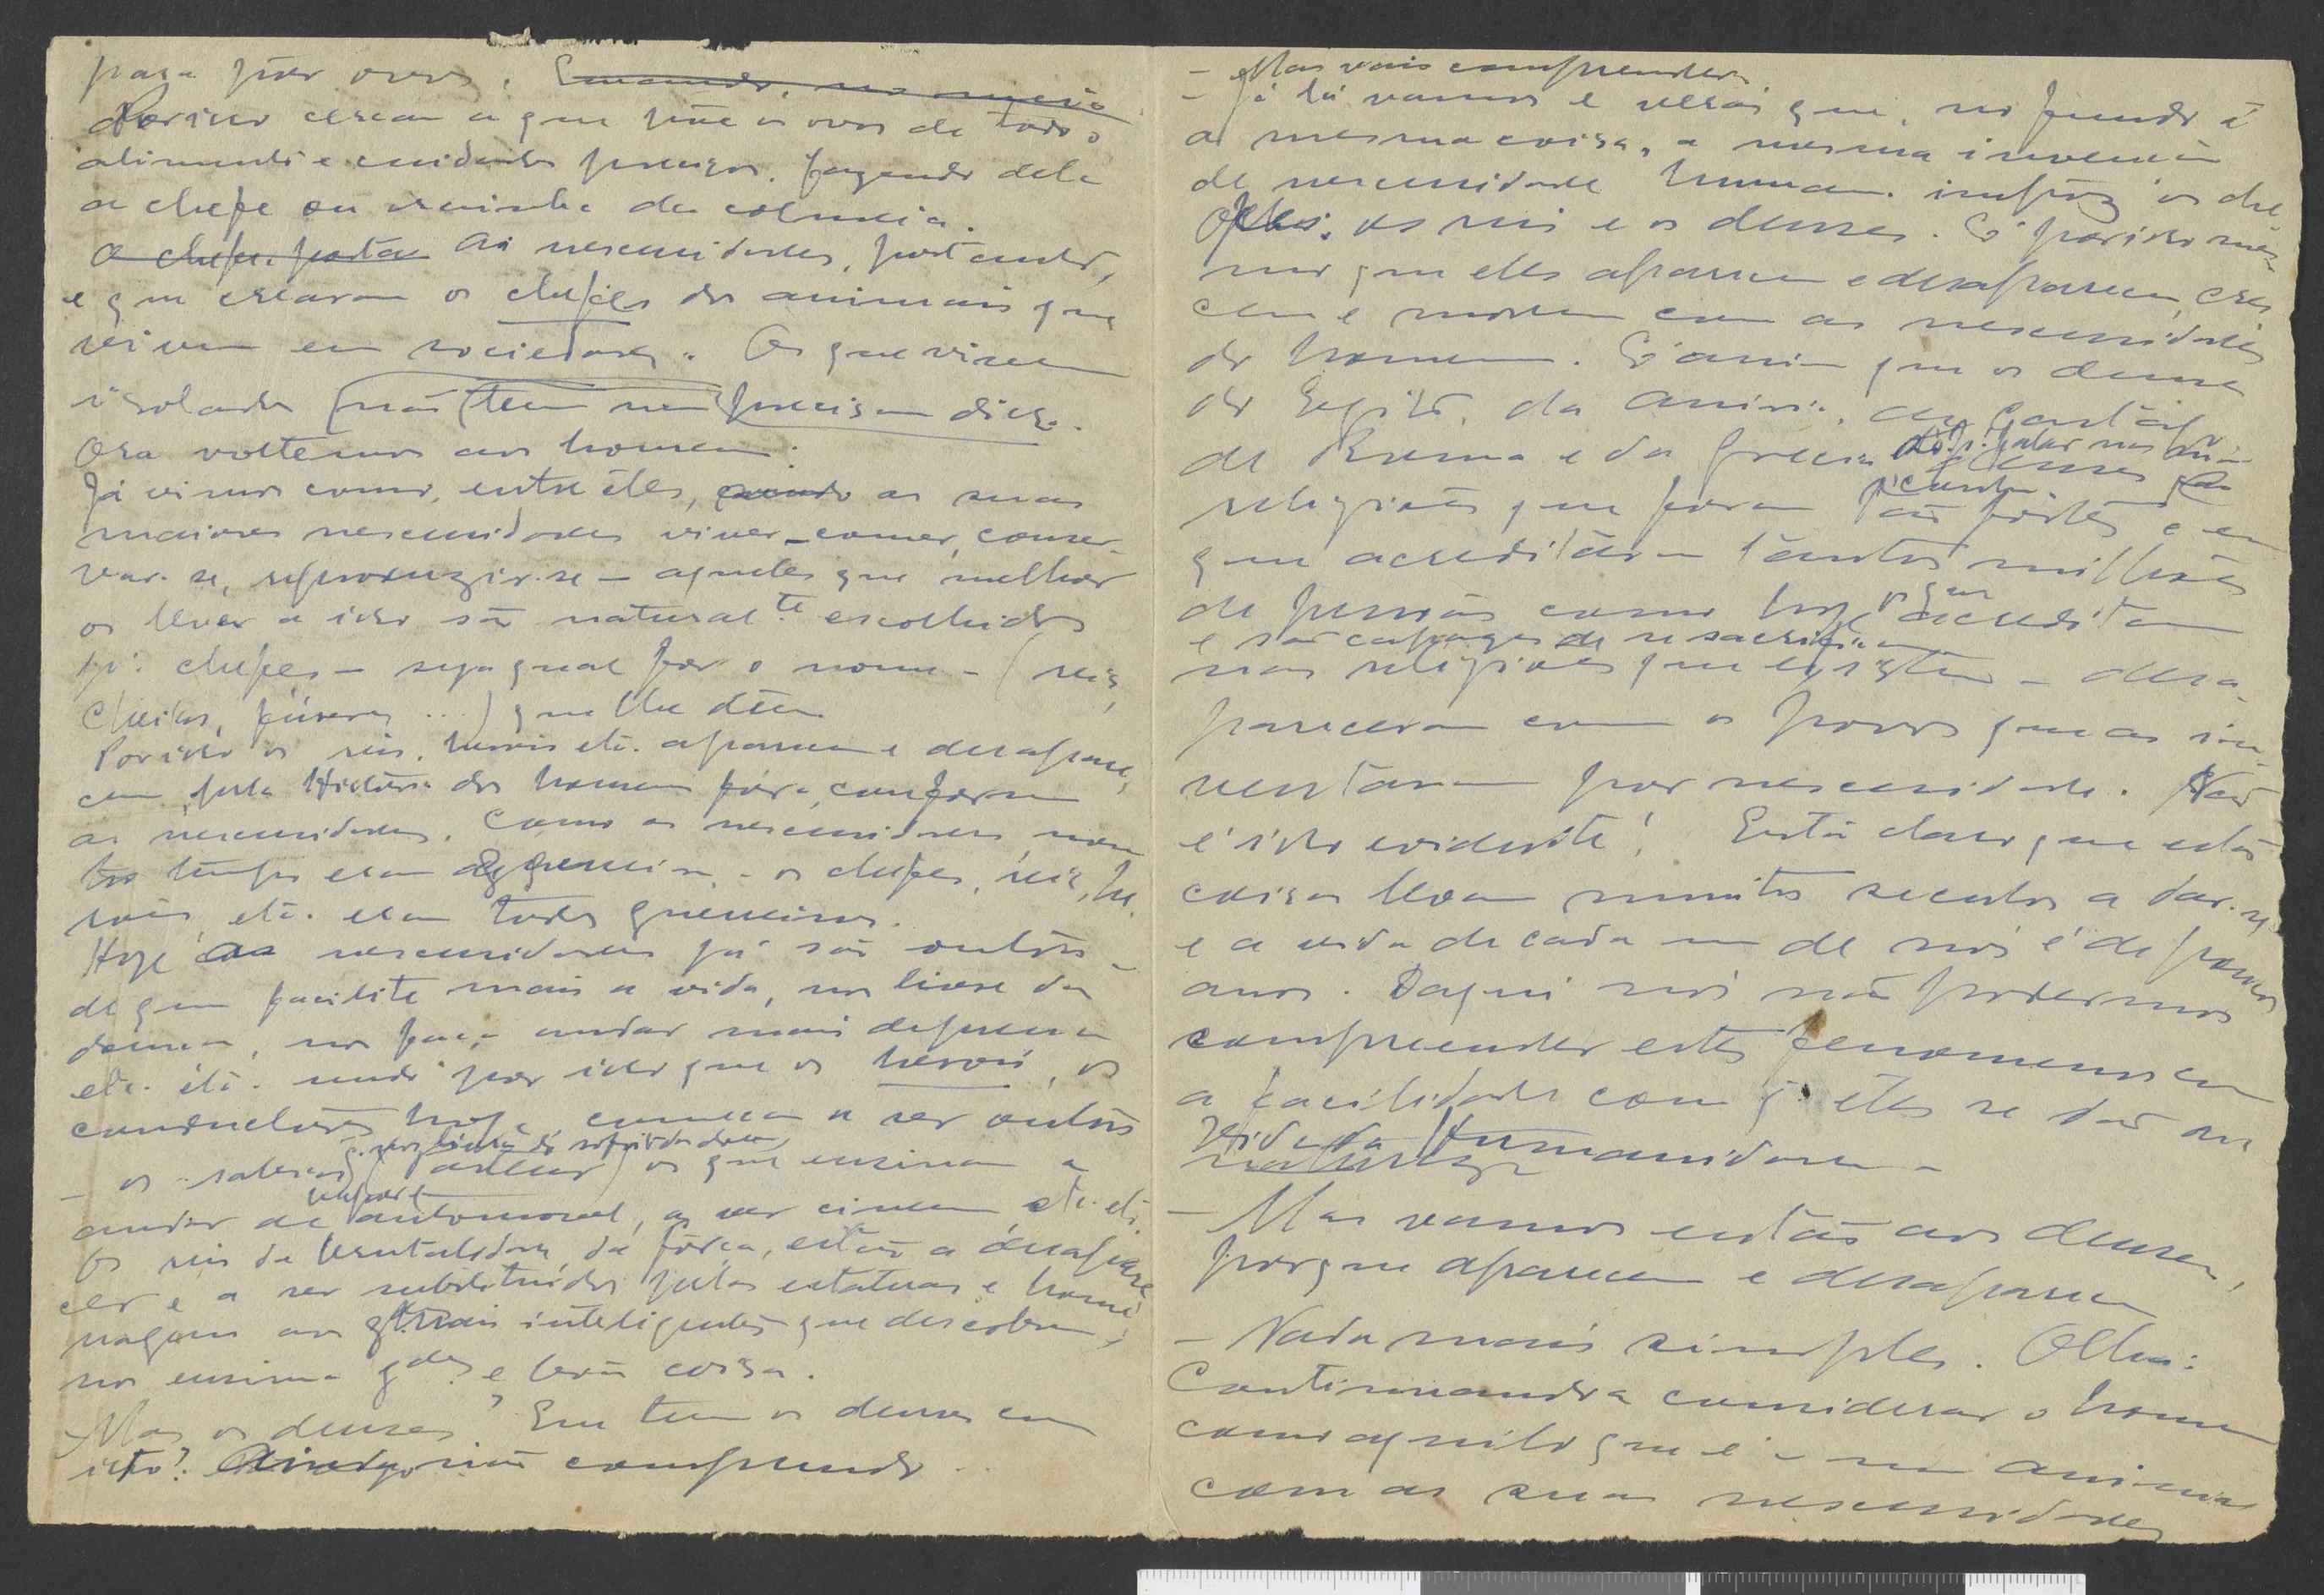 para pôr ovos.
Por isso cercam a que põe os ovos de todo o
alimento e cuidados precisos, fazendo dela
a chefe ou rainha da colmeia.
As necessidades, portanto,
é que crearam os chefes dos animais que
vivem em sociedades. Os que vivem
isolados não teem nem precisam disso.
Ora voltemos aos homens.
Já vimos como, entre êles, as suas
maiores necessidades viver - comer, conser-
var-se, reproduzir-se - aqueles que melhor
os levar a isso são natural.te escolhidos
pª chefes - seja qual fôr o nome - (reis,
...) que lhe dêem
Por isso os reis, herois etc. aparecem e desapare-
cem pela História dos homens fóra, conforme
as necessidades. Como as necessidades nou-
tros tempos eram de guerreiros - os chefes, reis, he-
rois, etc. eram todos guerreiros.
Hoje as necessidades já são outras -
de quem facilite mais a vida, nos livre da
doença, nos faça andar mais depressa
etc. etc. sendo por isso que os herois, os
conductores hoje começam a ser outros
- os sabios os que ensinam a
andar de automovel, a ver cinema etc. etc.
Os reis da brutalidade, da fôrça, estão a desapare-
cer e a ser substituidos pelas estatuas e home-
nagens aos mais inteligentes que descobrem,
nos ensinam gdes e bôas coisas.
- Mas os deuses? Que teem os deuses com
isto? Ainda não compreendo...
- Mas vais compreender.
- Já lá vamos e verás que, no fundo é
a mesma coisa, a mesma invenção
de necessidade humana impôz os che-
fes, os reis e os deuses. É por isso mes-
mo que eles aparecem e desaparecem, cres-
cem e morrem com as necessidades
do homem. É assim que os deuses
do Egipto, da Assiria, de Cartago,
de Roma e da Grecia
religiões que foram tão fortes e em
que acreditáram tantos milhões
de pessoas como hoje os que acreditam
e são capazes de se sacrificarem
nas religiões que existem - desa-
pareceram com os povos que as in-
ventaram por necessidade. Não
é isto evidente! Está claro que estas
coisas levam muitos seculos a dar-se
e a vida de cada um de nós é de poucos
anos. Daqui nós não podermos
compreender estes fenomenos com
a facilidade com q. êles se dão na
vida da Humanidade -
- Mas vamos então aos deuses,
porque aparecem e desaparecem
- Nada mais simples. Olha:
Continuando a considerar o homem
como aquilo que é - um animal
com as suas necessidades